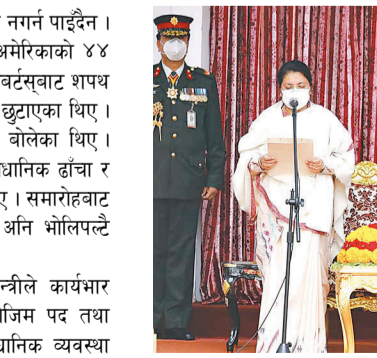 नगर्न पाइँदैन ।
अमेरिकाको ४४
बर्टस्‌बाट शपथ
छुटाएका थिए ।
बोलेका थिए ।
धानिक ढाँचा र
ए । समारोहबाट
अनि भोलिपल्टै
न्त्रीले कार्यभार
जिम पद तथा
धानिक व्यवस्था